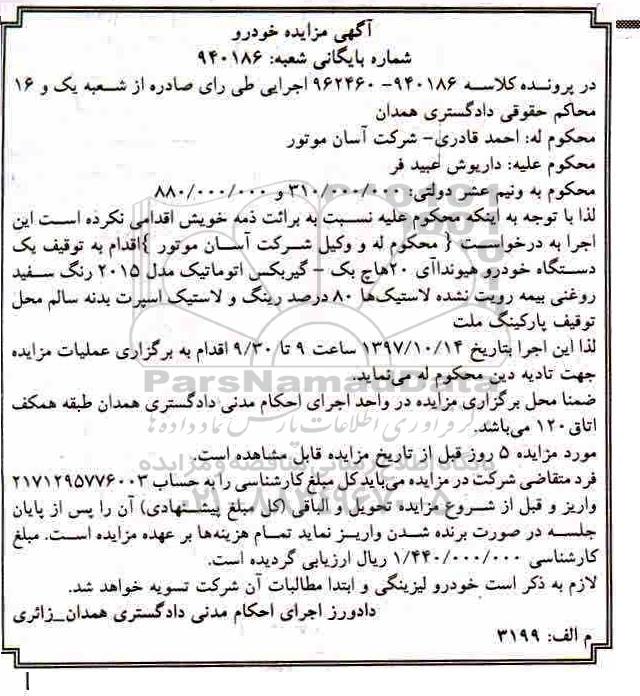 آگهی مزایده خودرو
شماره بایگانی شعبه: ۹۴۰۱۸۶
در پرونده کلاسه ۹۴۰۱۸۶- ۹۶۲۴۶۰ اجرایی طی رای صادره از شعبه یک و ۱۶
محاکم حقوقی دادگستری همدان
محکوم له: احمد قادری- شرکت آسان موتور
محکوم علیه: داریوش عبید فر
محکوم به ونیم عشر دولتی: ۳۱۰/۰۰۰/۰۰۰ و ۸۸۰/۰۰۰/۰۰۰
لذا با توجه به اینکه محکوم علیه نسبت به برائت ذمه خویش اقدامی نکرده است این
اجرا به درخواست { محکوم له و وکیل شرکت آسان موتور }اقدام به توقیف یک
دستگاه خودرو هیوندآای ۲۰هاچ بک – گیربکس اتوماتیک مدل ۲۰۱۵ رنگ سفید
روغنی بیمه رویت نشده لاستیک‌ها ۸۰ درصد رینگ و لاستیک اسپرت بدنه سالم محل
توقیف پارکینگ ملت
لذا این اجرا بتاریخ ۱۳۹۷/۱۰/۱۴ ساعت ۹ تا ۹/۳۰ اقدام به برگزاری عملیات مزایده
جهت تادیه دین محکوم له می‌نماید.
ParsNamadData
ضمنا محل برگزاری مزایده در واحد اجرای احکام مدنی دادگستری همدان طبقه همکف
اتاق۱۲۰ می‌باشد.
مورد مزایده ۵ روز قبل از تاریخ مزایده قابل مشاهده است.
فرد متقاضی شرکت در مزایده می‌باید کل مبلغ کارشناسی را به حساب ۲۱۷۱۲۹۵۷۷۶۰۰۳
واریز و قبل از شروع مزایده تحویل و الباقی (کل مبلغ پیشنهادی) آن را پس از پایان
جلسه در صورت برنده شدن واریز نماید تمام هزینه‌ها بر عهده مزایده است. مبلغ
کارشناسی ۱/۴۴۰/۰۰۰/۰۰۰ ریال ارزیابی گردیده است.
لازم به ذکر است خودرو لیزینگی و ابتدا مطالبات آن شرکت تسویه خواهد شد.
دادورز اجرای احکام مدنی دادگستری همدان_زائری
م الف: ۳۱۹۹